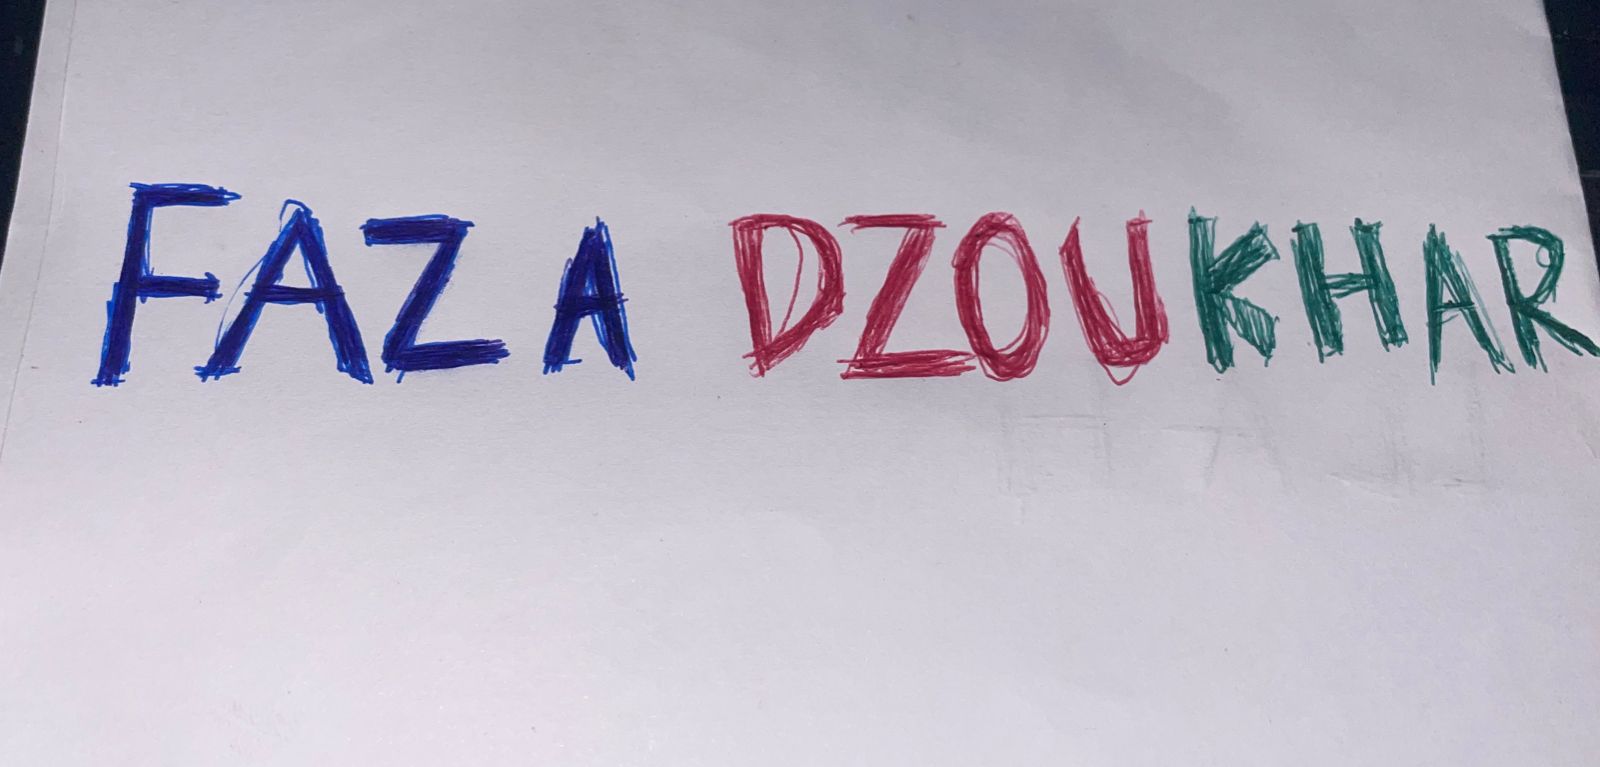 FAZA DZOUKHAR